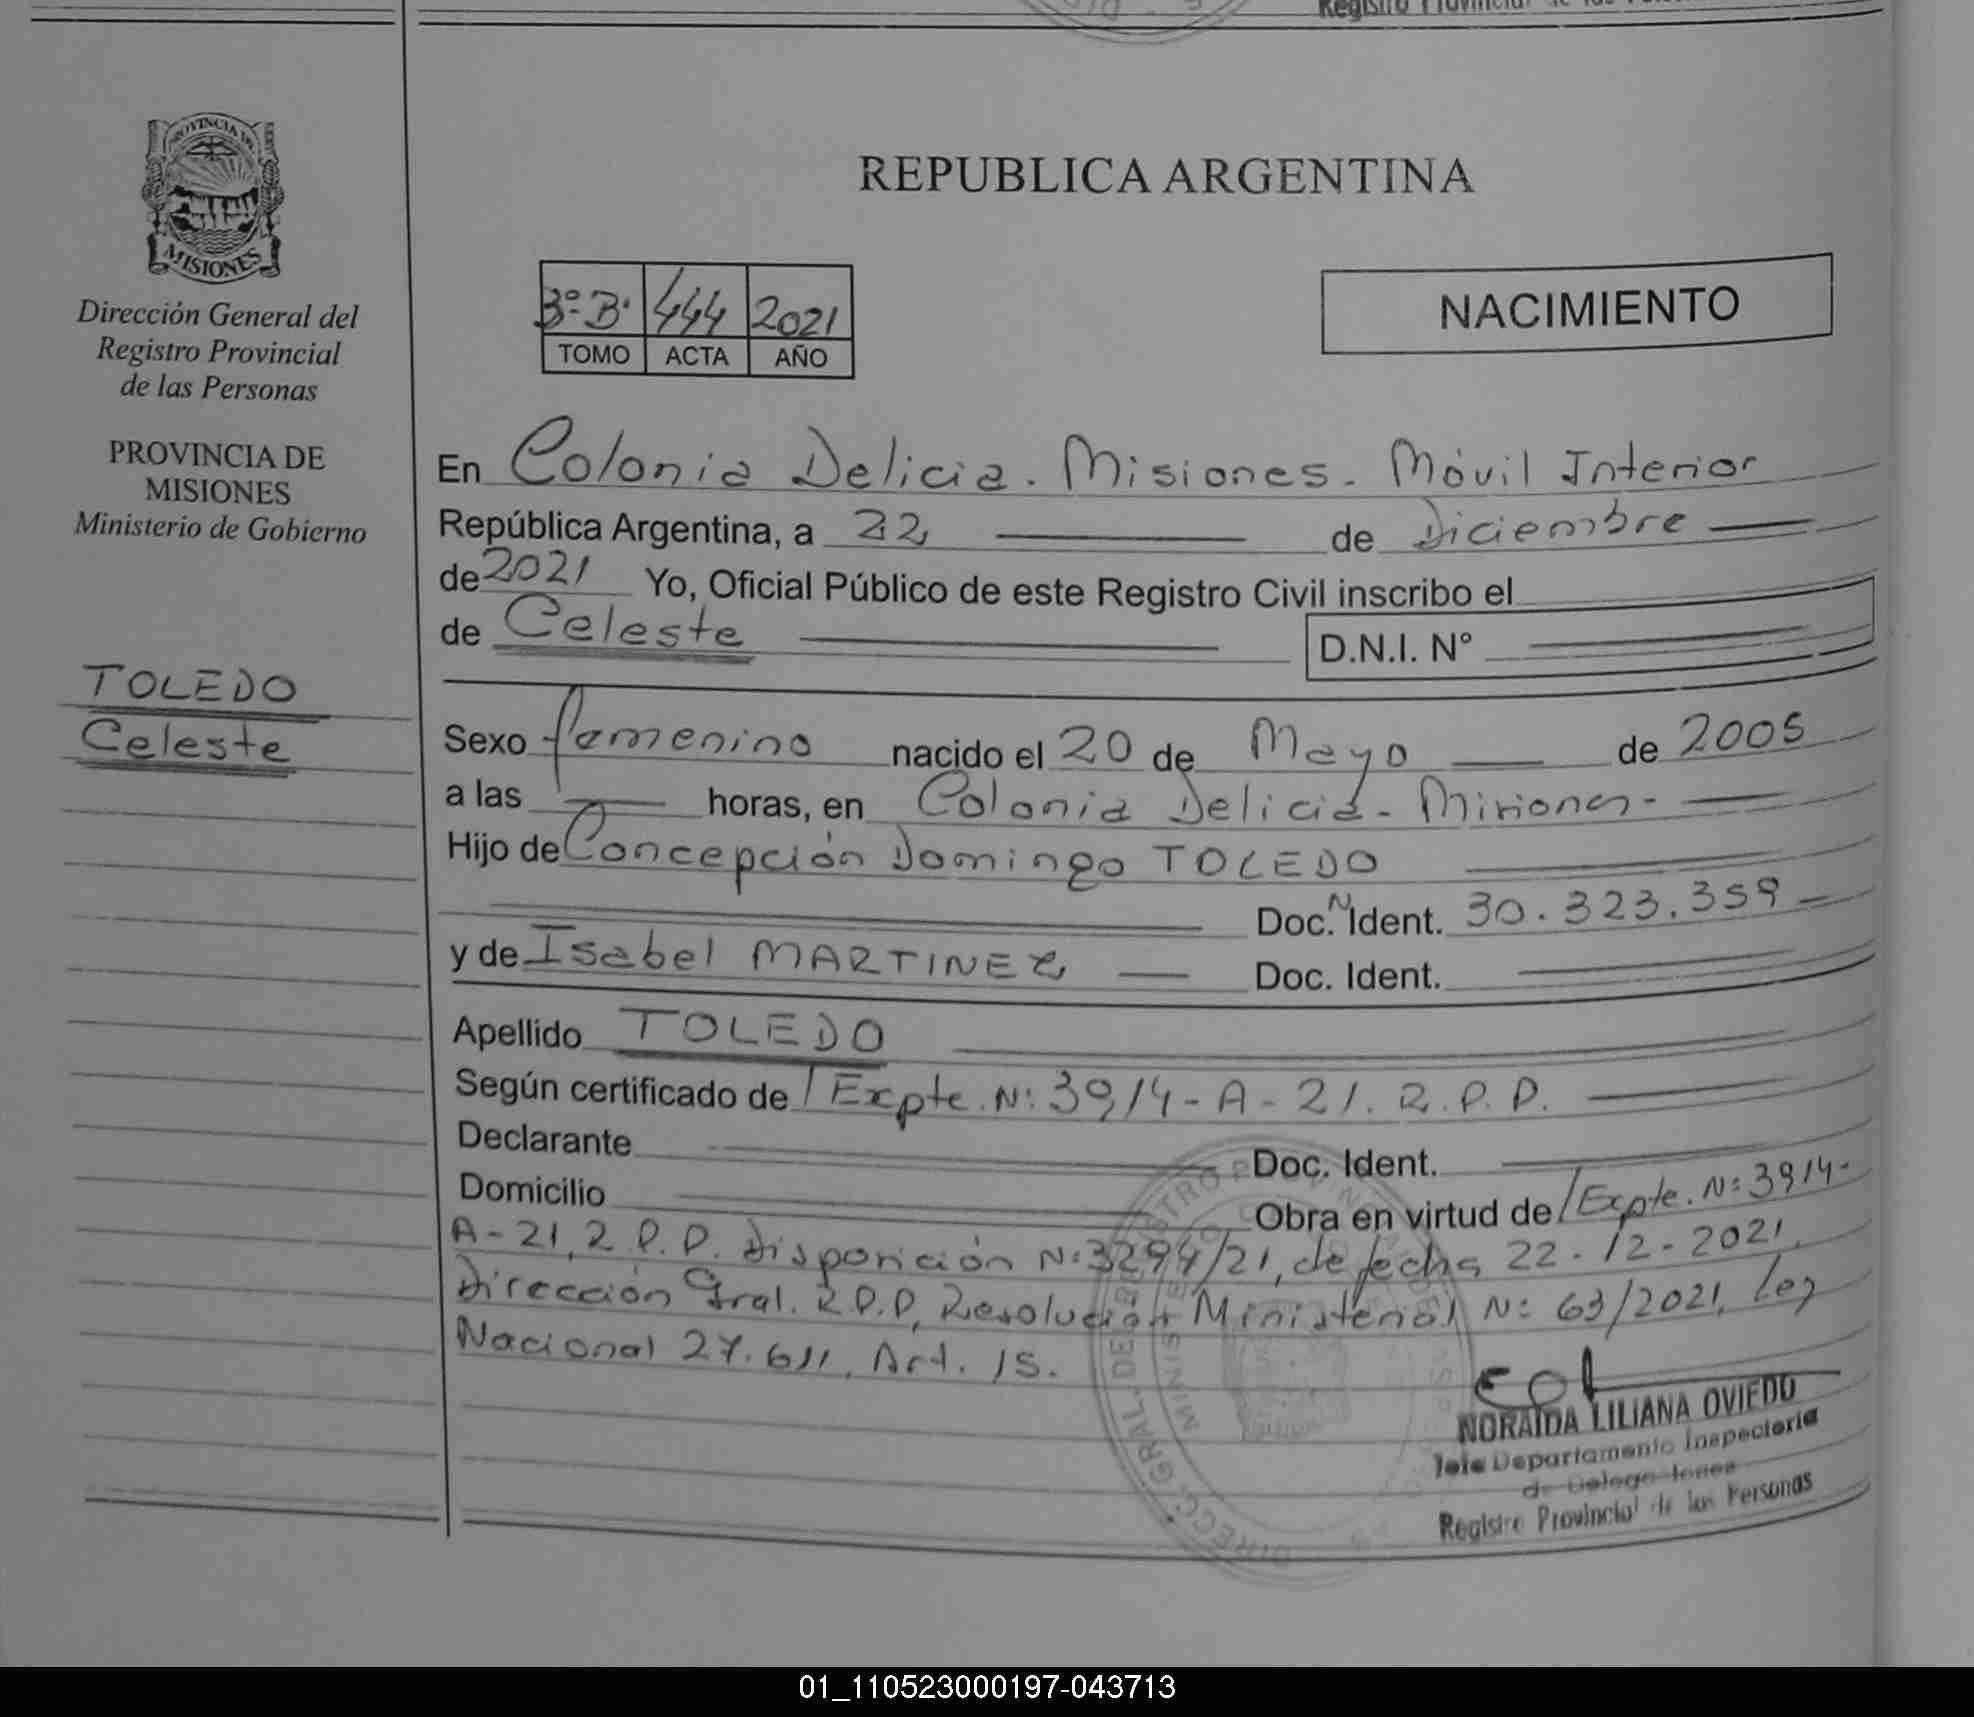 Registro Provincial de las
PROVINCIA DE
MISIONES
Dirección General del
Registro Provincial
de las Personas
PROVINCIA DE
MISIONES
Ministerio de Gobierno
TOLEDO
Celeste
REPUBLICA ARGENTINA
3º B. 444 2021
TOMO ACTA AÑO
NACIMIENTO
En Colonia Delicia. Misiones. Móvil Interior
República Argentina, a 22 de Diciembre
de 2021 Yo, Oficial Público de este Registro Civil inscribo el
de Celeste D.N.I. Nº
Sexo femenino nacido el 20 de Mayo de 2005
a las horas, en Colonia Delicia - Misiones -
Hijo de Concepción Domingo TOLEDO
Doc. N Ident. 30.323.359
y de Isabel MARTINEZ Doc. Ident.
Apellido TOLEDO
Según certificado de / Expte. N: 3914 - A - 21. R. P. P.
Declarante Doc. Ident.
Domicilio Obra en virtud de / Expte. N: 3914 -
A - 21, R. P. P. Disposición N: 3294/21, de fecha 22 - 12 - 2021,
Dirección Gral. R. P. P, Resolución Ministerial N: 63/2021, Ley
Nacional 27.611, Art. 15.
NORAIDA LILIANA OVIEDO
Jefe Departamento Inspectoria
de Delegaciones
Registro Provincial de las Personas
01_110523000197-043713